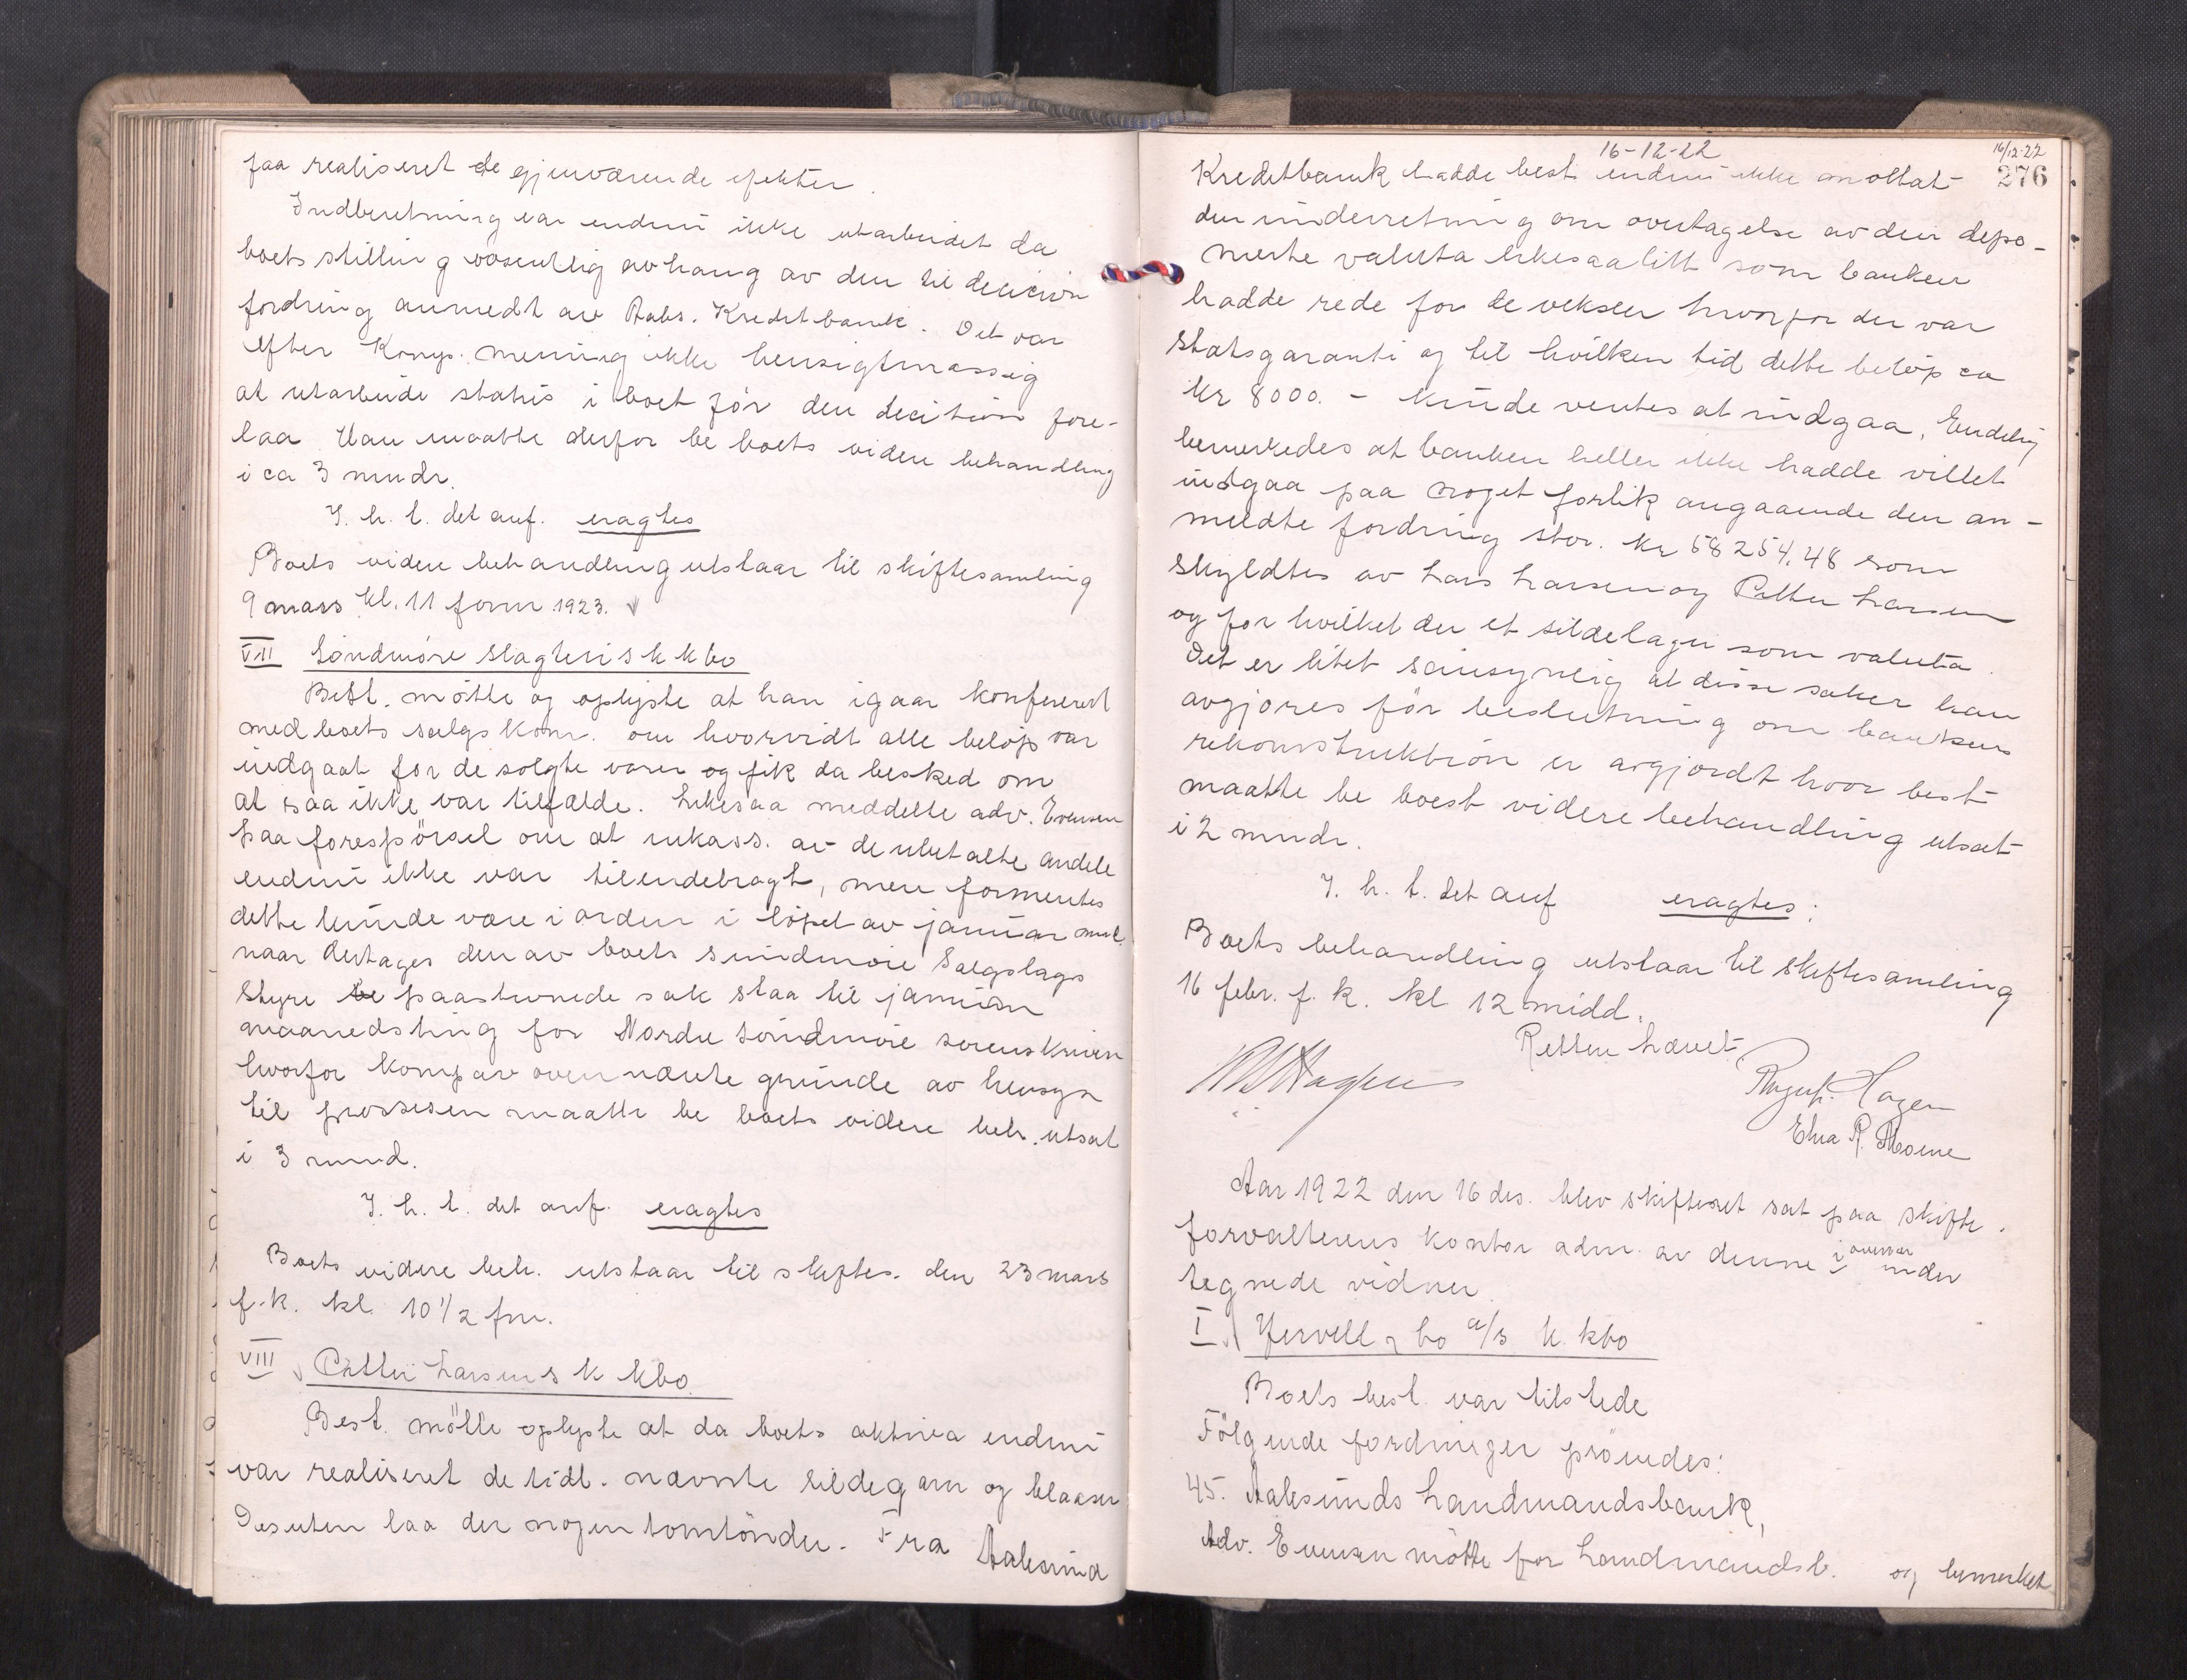 faa realiseret de gjenværende efekter.
Indberetning var endnu ikke utarbeidet da
boets stilling væsentlig avhang av den til decision
fordring anmedt av Aals. Kreditbank. Det var
efter Komp. mening ikke hensigtmæssig
at utarbeide status i boet før den decision fore-
laa Han maatte derfor be boets videre behandling
i ca 3 mndr.
I. h. t. det anf. eragtes
Boets videre behandling utstaar til skiftesamling
9 mars kl. 11 form 1923.
VII Søndmøre slagteris k kbo
Best. møtte og oplyste at han igaar konfereret
med boets salgskom. om hvorvidt alle beløp var
indgaat for de solgte varer og fik da besked om
at saa ikke var tilfælde. Likesaa meddelte adv. Evensen
paa forespørsel om at inkass. av de ubetalte andele
endnu ikke var tilendebragt, men formentes
dette kunde være i orden i løpet av januar
naar den av boets Salgslags
styre be paastevnede sak staa til januar
maanedsting for Nordre søndmøre sorenskriveri
hvorfor komp av ovennævnte grunde av hensyn
til prossesen maatte be boets videre beh. utsat
i 3 mnd.
I. h. t. det anf. eragtes
Boets videre beh. utstaar til skiftes. den 23 mars
f.k. kl. 10 1/2 fm.
VIII Petter Larsens k kbo
Best. møtte oplyste at da boets aktiva endnu
var realiseret de tidl. nævnte sildegarn og blaaser
Desuten laa der nogen tomtønder. Fra Aalesund
16-12-22
16/12-22
276
Kreditbank hadde best. endnu ikke mottat
den underretning om overtagelse av den depo-
nerte valuta likesaalitt som banken
hadde rede for de veksler hvorfor der var
statsgaranti og til hvilken tid dette beløp ca
kr 8000.- kunde ventes at indgaa. Endelig
bemerkedes at banken heller ikke hadde villet
indgaa paa noget forlik angaaende den an-
meldte fordring stor. kr 58254,48 som
skyldtes av Lars Larsen og Petter Larsen
og for hvilket der et sildelager som valuta.
Det er litet sansynlig at disse saker kan
avgjøres før beslutning om bankens
rekonstruktion er avgjordt hvor best
maatte be boest videre behandling utsat
i 2 mndr.
I. h. t. det anf eragtes:
Boets behandling utstaar til skiftesamling
16 febr. f. k. kl 12 midd.
Retten hævet
Hagen
August Hagen
R.
Aar 1922 den 16 des. blev skifteret sat paa skifte.
forvalterens kontor adm. av denne i overvær under
tegnede vidner
I Jervell & Co a/s k. kbo
Boets best. var tilstede
Følgende fordringer prøvedes:
45. Aalesunds handmandsbank,
Adv. Evensen møtte for handmandsb. og bemerket